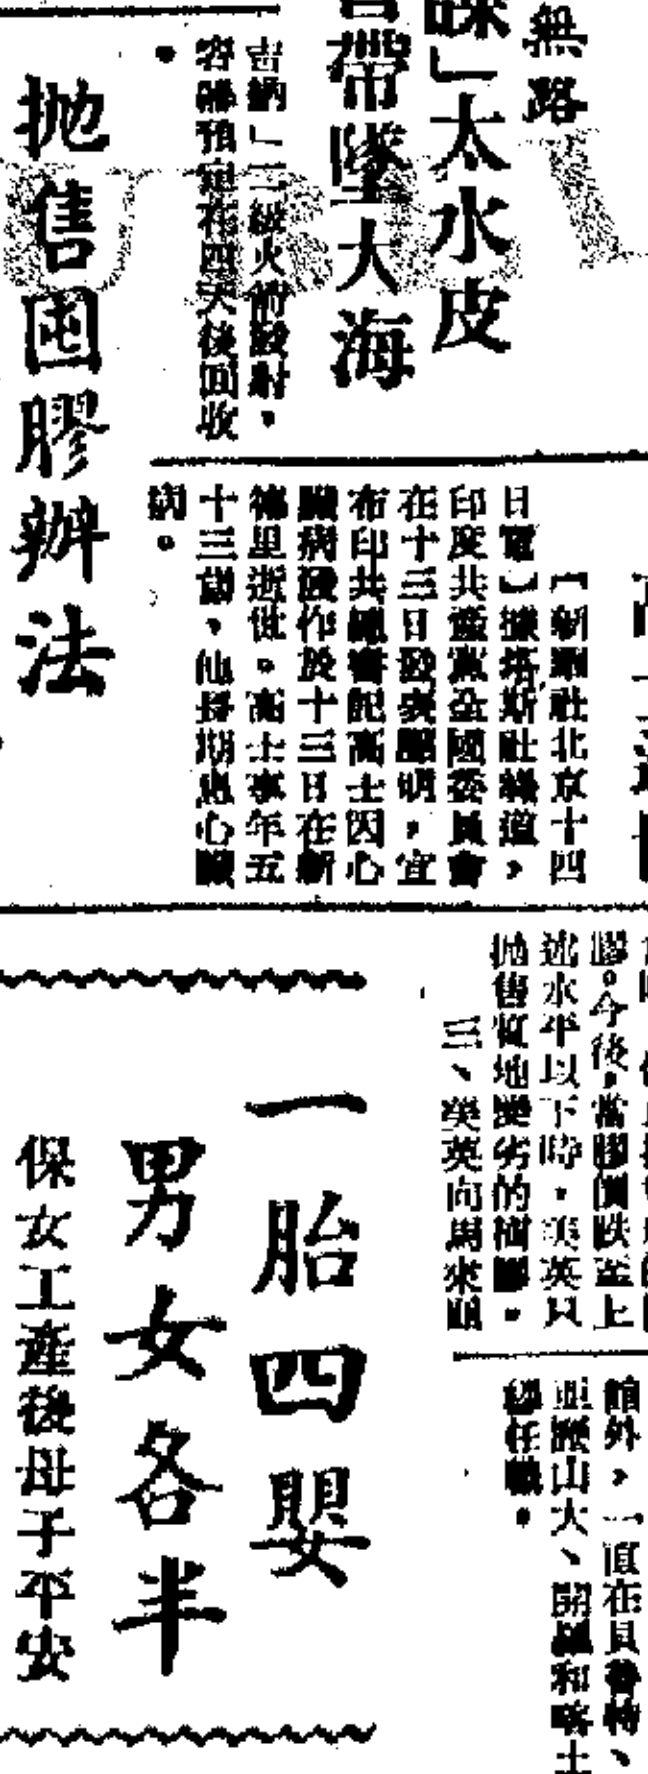 無路
」太水皮
帶墜大海
吉納」二級火箭發射，
容器預定在四天後回收
。
拋售囤膠辦法
【新華社北京十四
日電】據塔斯社報道，
印度共產黨全國委員會
在十三日發表聲明，宣
布印共總書記高士因心
臟病發作於十三日在新
德里逝世。高士享年五
十三歲，他長期患心臟
病。
膠。今後，當膠價跌至上
述水平以下時，美英只
拋售質地變劣的樹膠。
三、美英向馬來亞
館外，一直在貝魯特、
亞歷山大、開羅和喀土
穆任職。
一胎四嬰
男女各半
保女工產後母子平安